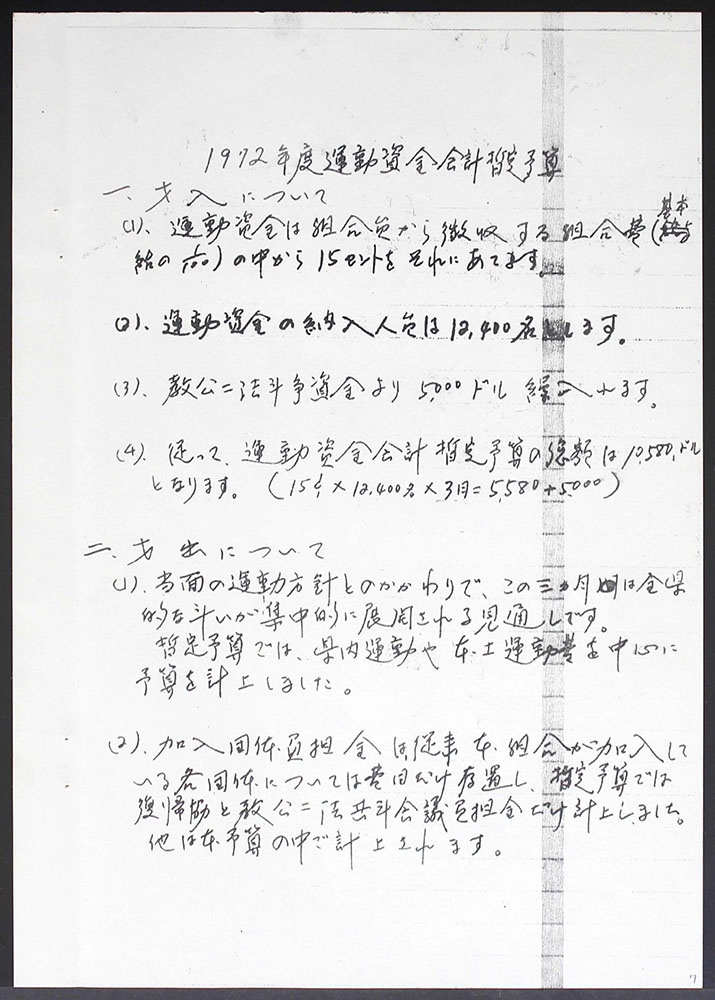 1972年度運動資金会計暫定予算
一、才入について
(1)、運動資金は組合員から徴収する組合費(基本
給の)の中から15セントをそれにあてます。
(2)、運動資金の納入人員は12,400名とします。
(3)、教公二法斗争資金より5,000ドル繰入れます。
(4)、従って、運動資金会計暫定予算の総額は10,580ドル
となります。(15¢×12,400名×3月=5,580+5,000)
二、才出について
(1)、当面の運動方針とのかかわりで、この三ヵ月は全県
的な斗いが集中的に展開される見通しです。
暫定予算では、県内運動や本土運動費を中心に
予算を計上しました。
(2)、加入団体負担金は従来本組合が加入して
いる各団体については費目だけ存置し、暫定予算では
復帰協と教公二法共斗会議負担金だけ計上しました。
他は本予算の中で計上されます。
7